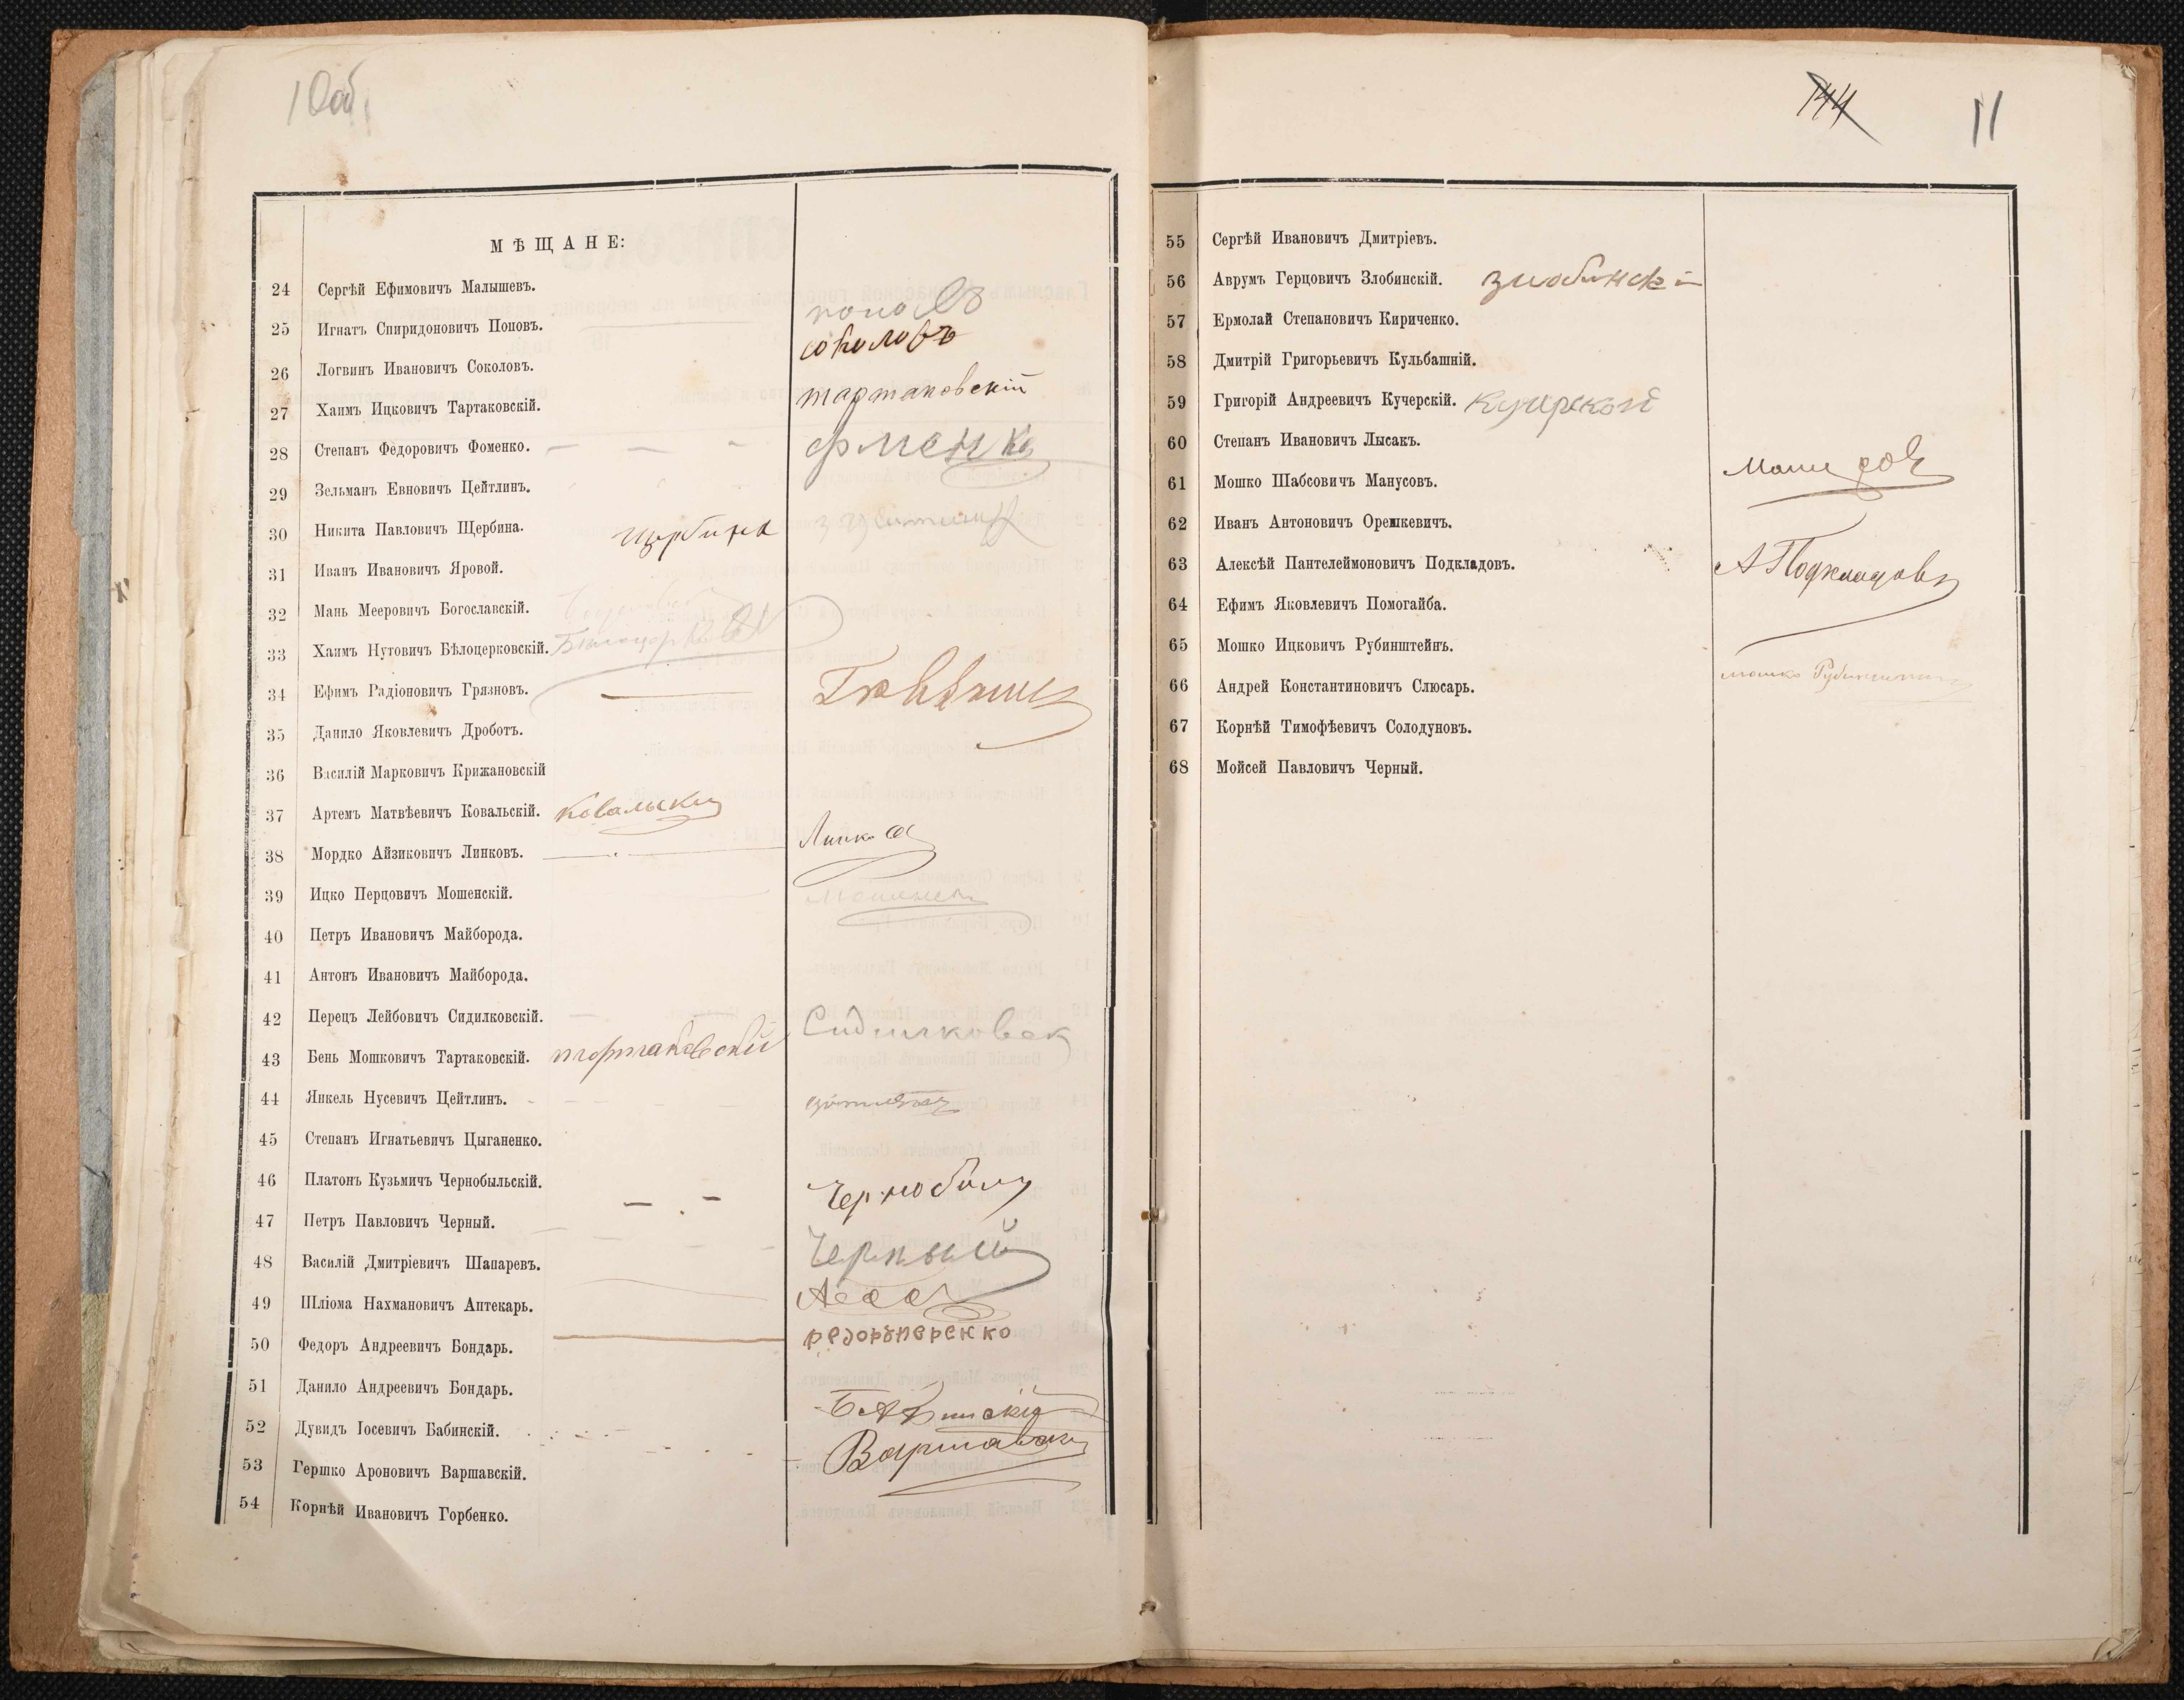 10об.
МѢЩАНЕ:
24 Сергѣй Ефимовичъ Малышевъ.
25 Игнатъ Спиридоновичъ Поповъ. попов
26 Логвинъ Ивановичъ Соколовъ. соколовъ
27 Хаимъ Ицковичъ Тартаковскій. тартаковскій
28 Степанъ Федоровичъ Фоменко. фменко
29 Зельманъ Евновичъ Цейтлинъ.
30 Никита Павловичъ Щербина. щербина
31 Иванъ Ивановичъ Яровой.
32 Мань Мееровичъ Богославскій.
33 Хаимъ Нутовичъ Бѣлоцерковскій.
34 Ефимъ Радіоновичъ Грязновъ.
35 Данило Яковлевичъ Дроботъ.
36 Василій Марковичъ Крижановскій
37 Артемъ Матвѣевичъ Ковальскій. Ковальски
38 Мордко Айзиковичъ Линковъ. Линков
39 Ицко Перцовичъ Мошенскій.
40 Петръ Ивановичъ Майборода.
41 Антонъ Ивановичъ Майборода.
42 Перецъ Лейбовичъ Сидилковскій. Сидилковск
43 Бень Мошковичъ Тартаковскій. тартаковский
44 Янкель Нусевичъ Цейтлинъ.
45 Степанъ Игнатьевичъ Цыганенко.
46 Платонъ Кузьмичъ Чернобыльскій. Чернобыл
47 Петръ Павловичъ Черный. Черный
48 Василій Дмитріевичъ Шапаревъ.
49 Шліома Нахмановичъ Аптекарь.
50 Федоръ Андреевичъ Бондарь.
51 Данило Андреевичъ Бондарь.
52 Дувидъ Іосевичъ Бабинскій. Бабинскій
53 Гершко Ароновичъ Варшавскій. Варшавски
54 Корнѣй Ивановичъ Горбенко.
144 11
55 Сергѣй Ивановичъ Дмитріевъ.
56 Аврумъ Герцовичъ Злобинскій. Злобинскі
57 Ермолай Степановичъ Кириченко.
58 Дмитрій Григорьевичъ Кульбашній.
59 Григорій Андреевичъ Кучерскій. Кучерской
60 Степанъ Ивановичъ Лысакъ.
61 Мошко Шабсовичъ Манусовъ.
62 Иванъ Антоновичъ Орешкевичъ.
63 Алексѣй Пантелеймоновичъ Подкладовъ. А Подкладовъ
64 Ефимъ Яковлевичъ Помогайба.
65 Мошко Ицковичъ Рубинштейнъ. мошко Рубинштейнъ
66 Андрей Константиновичъ Слюсарь.
67 Корнѣй Тимофѣевичъ Солодуновъ.
68 Мойсей Павловичъ Черный.